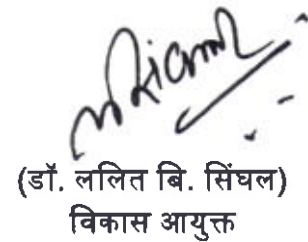 (डॉ. ललित बि. सिंघल)
विकास आयुक्त